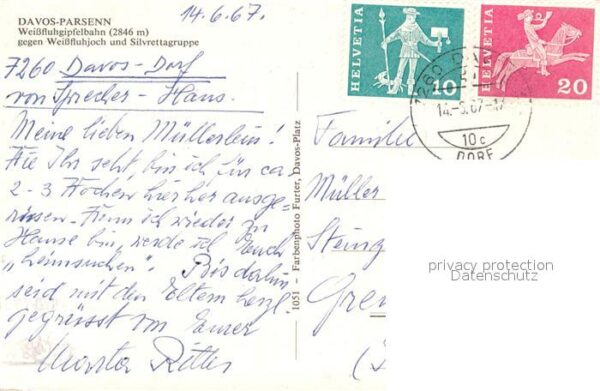 DAVOS-PARSENN
Weißfluhgipfelbahn (2846 m)
gegen Weißfluhjoch und Silvrettagruppe
14.6.67.
7260 Davos-Dorf
von Sprecher-Haus.
Meine lieben Müllerlein!
Wie Ihr seht, bin ich für ca.
2-3 Wochen hierher ausge-
rissen. Wenn ich wieder zu
Hause bin, werde ich Euch
„heimsuchen". Bis dahin
seid mit den Eltern herzl.
gegrüsst von Eurer
Ritter
1051 - Farbenphoto Furter, Davos-Platz
HELVETIA
10
HELVETIA
20
7260
10c
DORF
Familie
Müller
Steing
Gre
privacy protection
Datenschutz